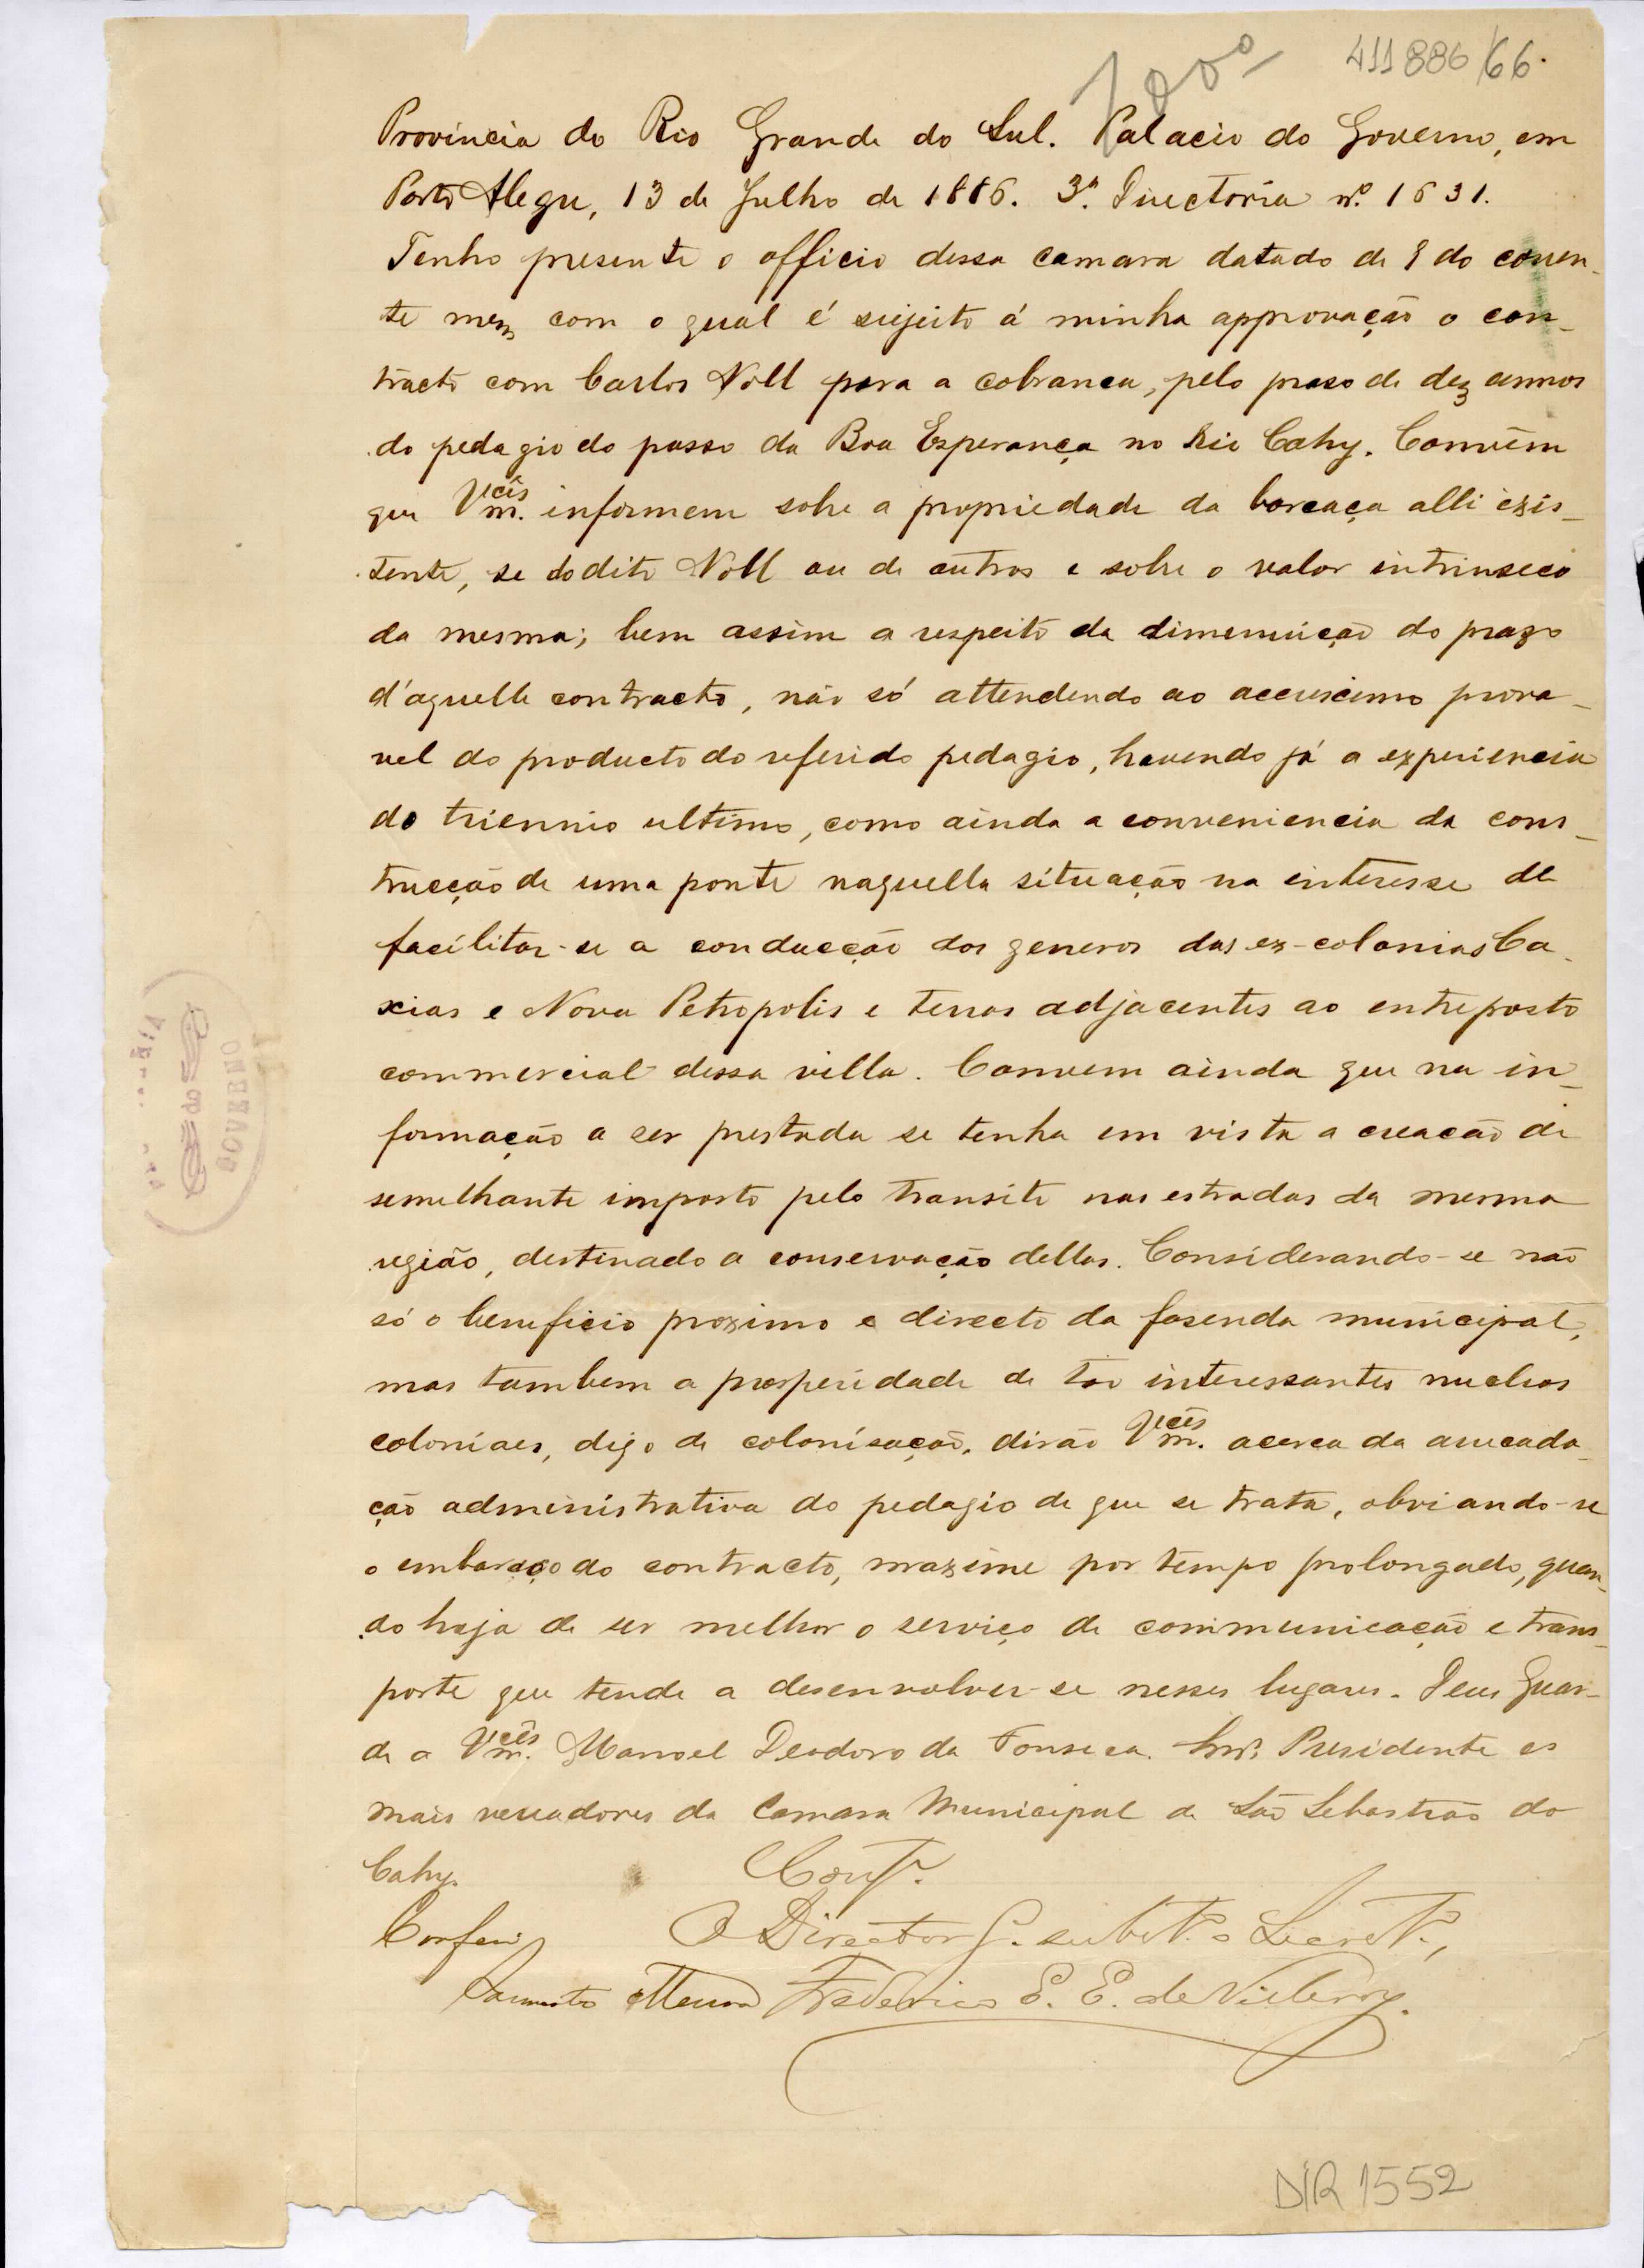 411886/66.
Provincia do Rio Grande do Sul. Palacio do Governo, em
Porto Alegre, 13 de Julho de 1886. 3ª. Directoria nº. 1631.
Tenho presente o officio dessa camara datado de 8 do corren-
te mez com o qual é sujeito á minha approvação o con-
tracto com Carlos Noll para a cobranca, pelo praso de dez annos
do pedagio do passo da Boa Esperança no Rio Cahy. Convém
que Vm.cês informem sobre a propriedade da barcaça alli exis-
tente, se do dito Noll ou de outros e sobre o valor intrinseco
da mesma; bem assim a respeito da dimenuição do prazo
d'aquelle contracto, não só attendendo ao accrescimo prova-
vel do producto do referido pedagio, havendo já a experiencia
do triennio ultimo, como ainda a conveniencia da cons-
trucção de uma ponte naquella situação na interesse de
facilitar-se a conducção dos generos das ex-colonias Ca-
xias e Nova Petropolis e terras adjacentes ao entreposto
commercial dessa villa. Convem ainda que na in-
formação a ser prestada se tenha em vista a creação de
semelhante imposto pelo transito nas estradas da mesma
região, destinado a conservação dellas. Considerando-se não
só o beneficio proximo e directo da fasenda municipal,
mas tambem a prosperidade de tão interessantes nucleos
coloniaes, digo de colonisação, dirão Vm.cês acerca da arrecada-
ção administrativa do pedagio de que se trata, obviando-se
o embaraço do contracto, maxime por tempo prolongado, quan-
do haja de ser melhor o serviço de communicação e trans-
porte que tende a desenvolver-se nesses lugares. Deus Guar-
de a Vm.cês Manoel Deodoro da Fonseca. Snrs. Presidente e
mais vereadores da Camara Municipal de São Sebastião do
Cahy.
Conf.e
Conferi
O Director G. subst.º Secret.º,
Sarmento Menna
Frederico E. E. de Villeroy.
GOVERNO
DIR 1552